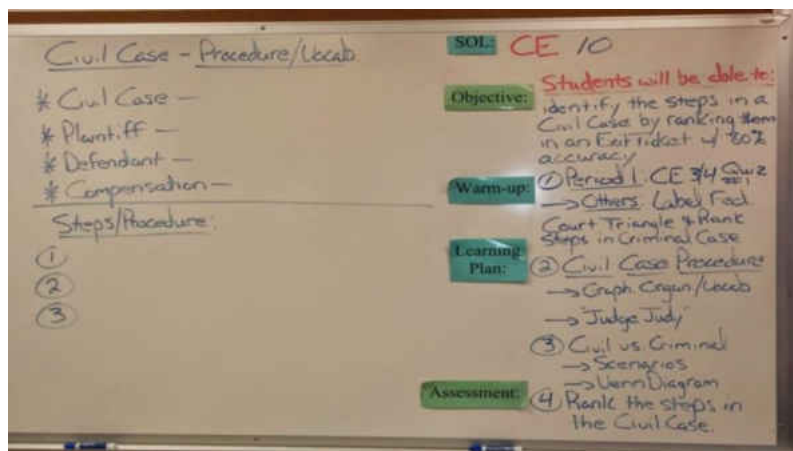 Civil Case - Procedure/Vocab
* Civil Case -
* Plaintiff -
* Defendant -
* Compensation -
Steps/Procedure:
①
②
③
SOL: CE 10
Students will be able to:
Objective: identify the steps in a
Civil Case by ranking them
in an Exit Ticket w/ 80%
accuracy
Warm-up: ① Period 1: CE 3/4 Quiz
→ Others: Label Fed
Court Triangle & Rank
Steps in Criminal Case
Learning Plan: ② Civil Case Procedure
→ Graph. Organ/Vocab
→ "Judge Judy"
③ Civil vs. Criminal
→ Scenarios
→ Venn Diagram
Assessment: ④ Rank the steps in
the Civil Case.